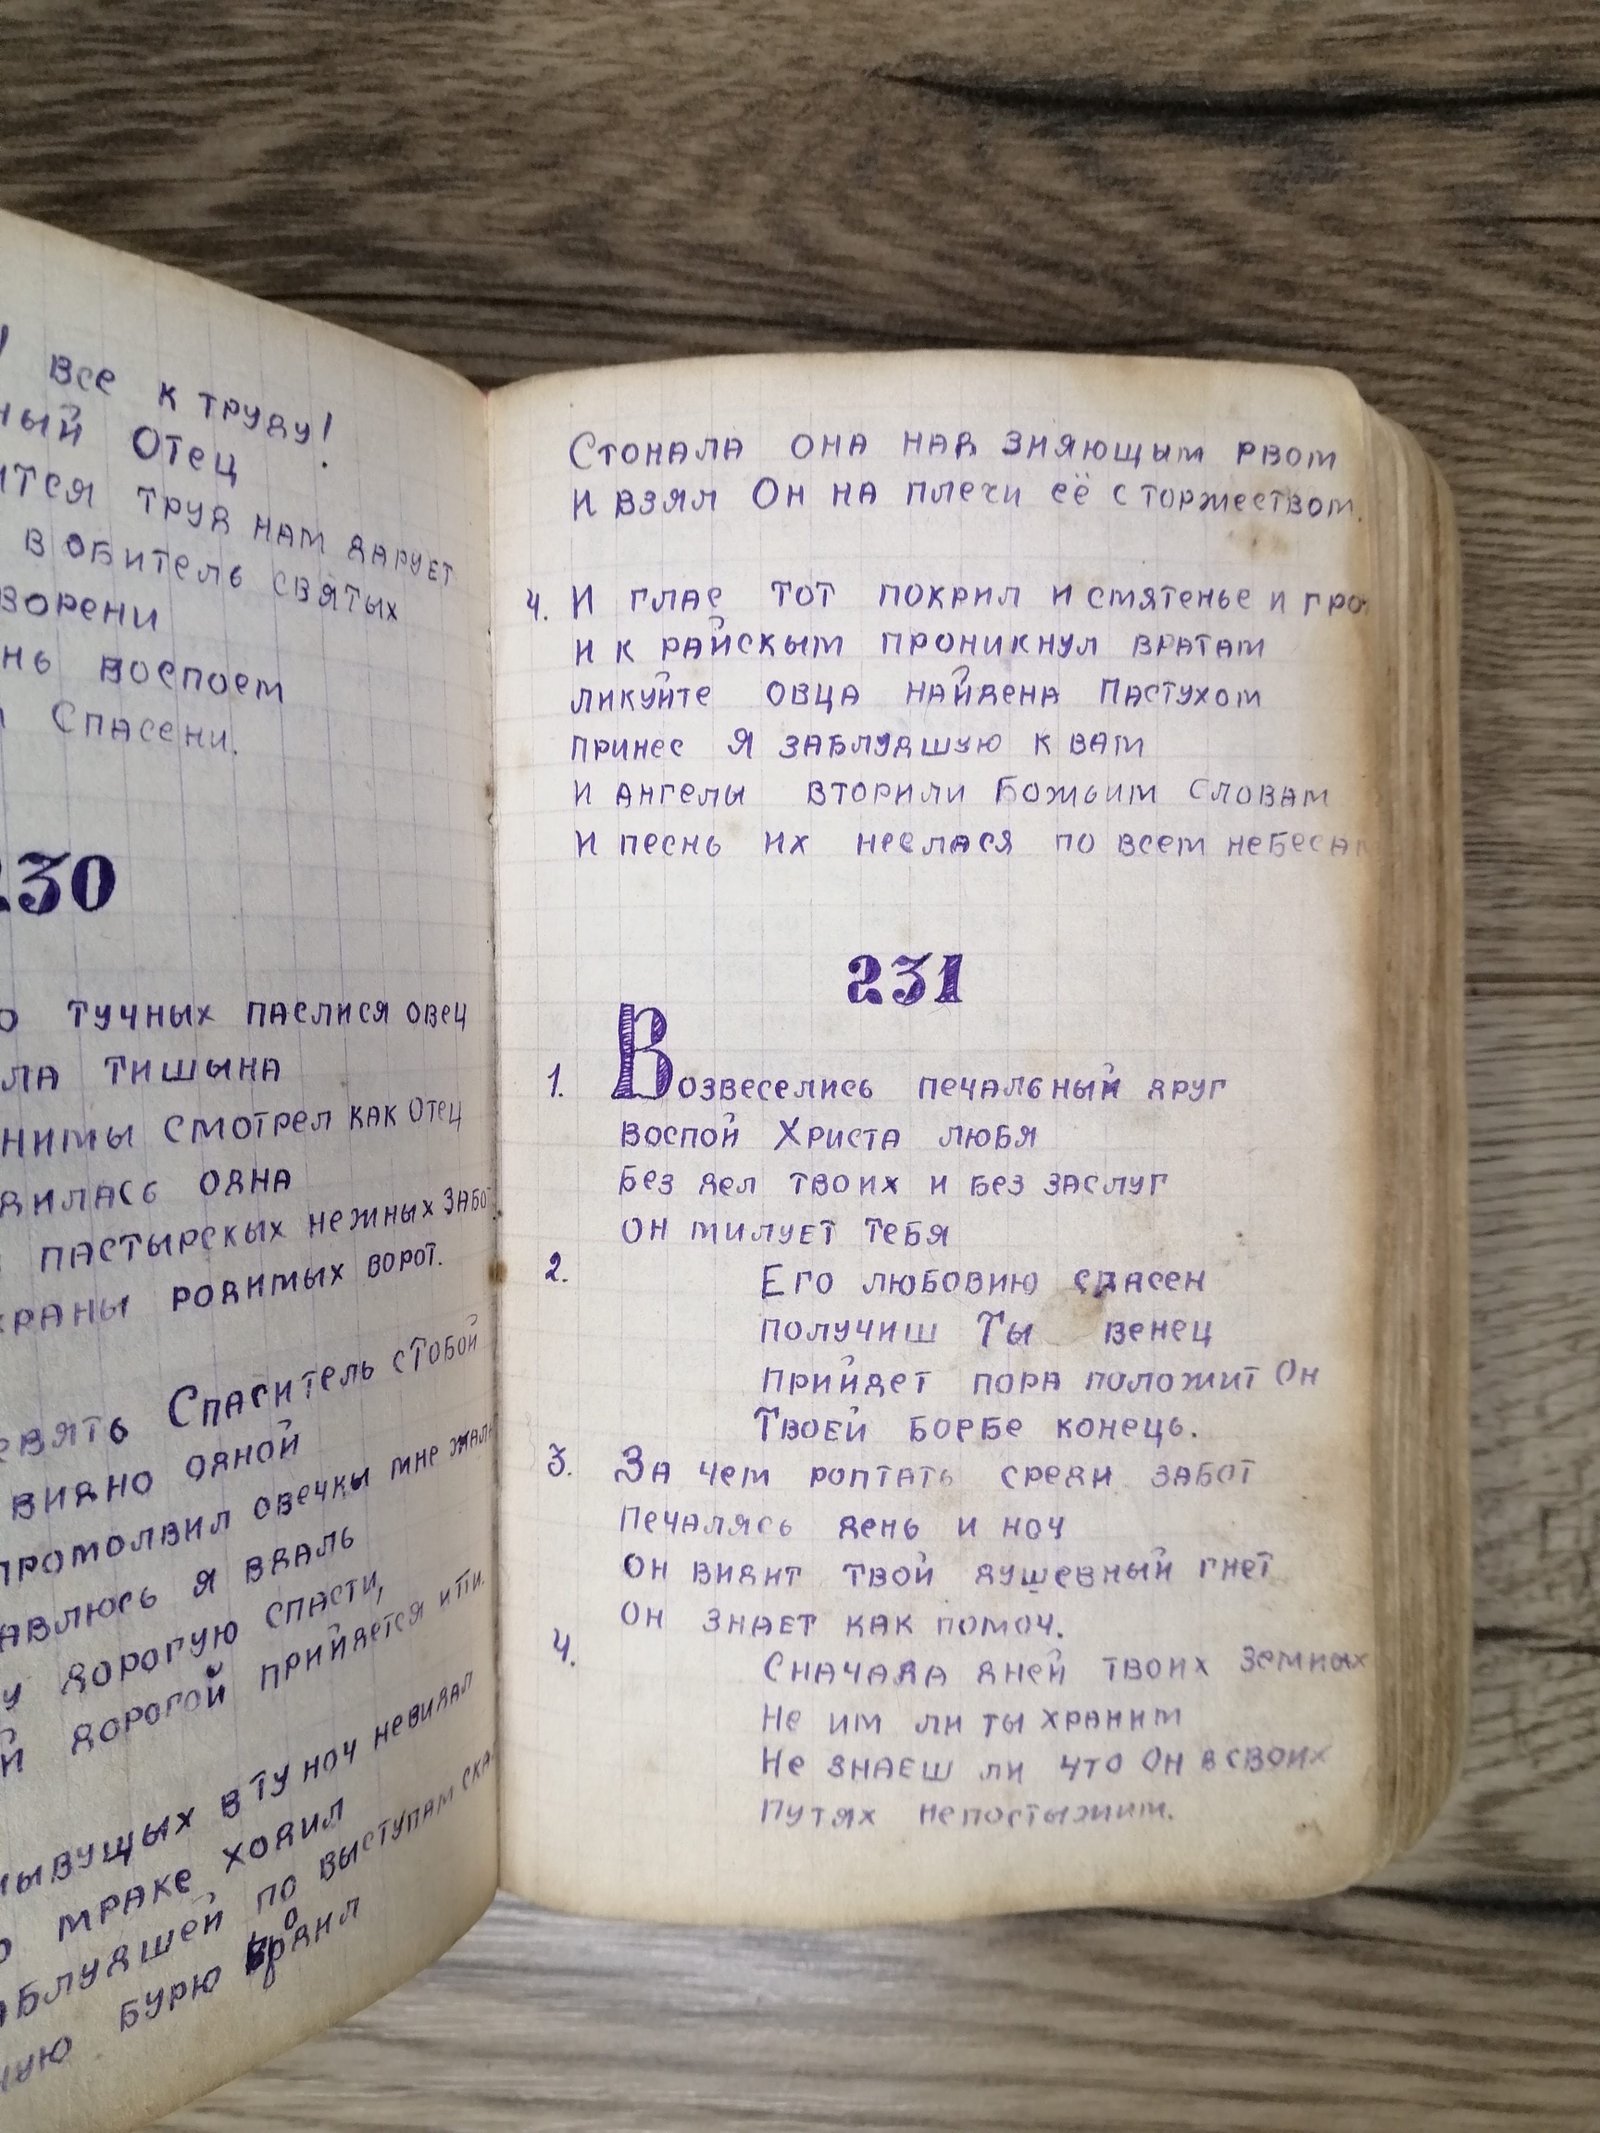 все к труду!
ный Отец
ится труд нам дарует
в обитель святых
ворени
нь воспоем
Спасени.
230
тучных паслися овец
ла тишына
нимы смотрел как Отец
дилась одна
пастырскых нежных забот
храны родимых ворот.
евять Спаситель стобой
видно одной
промолвил овечкы мне жаль
авлюсь я вдаль
у дорогую спасти,
й дорогой прийдется ити.
мывущых в ту ноч невидал
мраке ходил
аблудшей по выступам ска
ную бурю бродил
Стонала она над зияющым рвом
И взял Он на плечи её с торжеством.
4. И глас тот покрил и смятенье и гро
и к райскым проникнул вратам
ликуйте овца найдена Пастухом
принес Я заблудшую к вам
И ангелы вторили Божьим словам
И песнь их неслася по всем небесам
231
1. Возвеселись печальный друг
воспой Христа любя
Без дел твоих и без заслуг
он милует тебя
2. Его любовию спасен
получиш Ты венец
Прийдет пора положит Он
Твоей борбе конець.
3. За чем роптать среди забот
Печалясь день и ноч
Он видит твой душевный гнет
Он знает как помоч.
4. Сначада дней твоих земных
Не им ли ты храним
Не знаеш ли что Он в своих
Путях непостыжим.